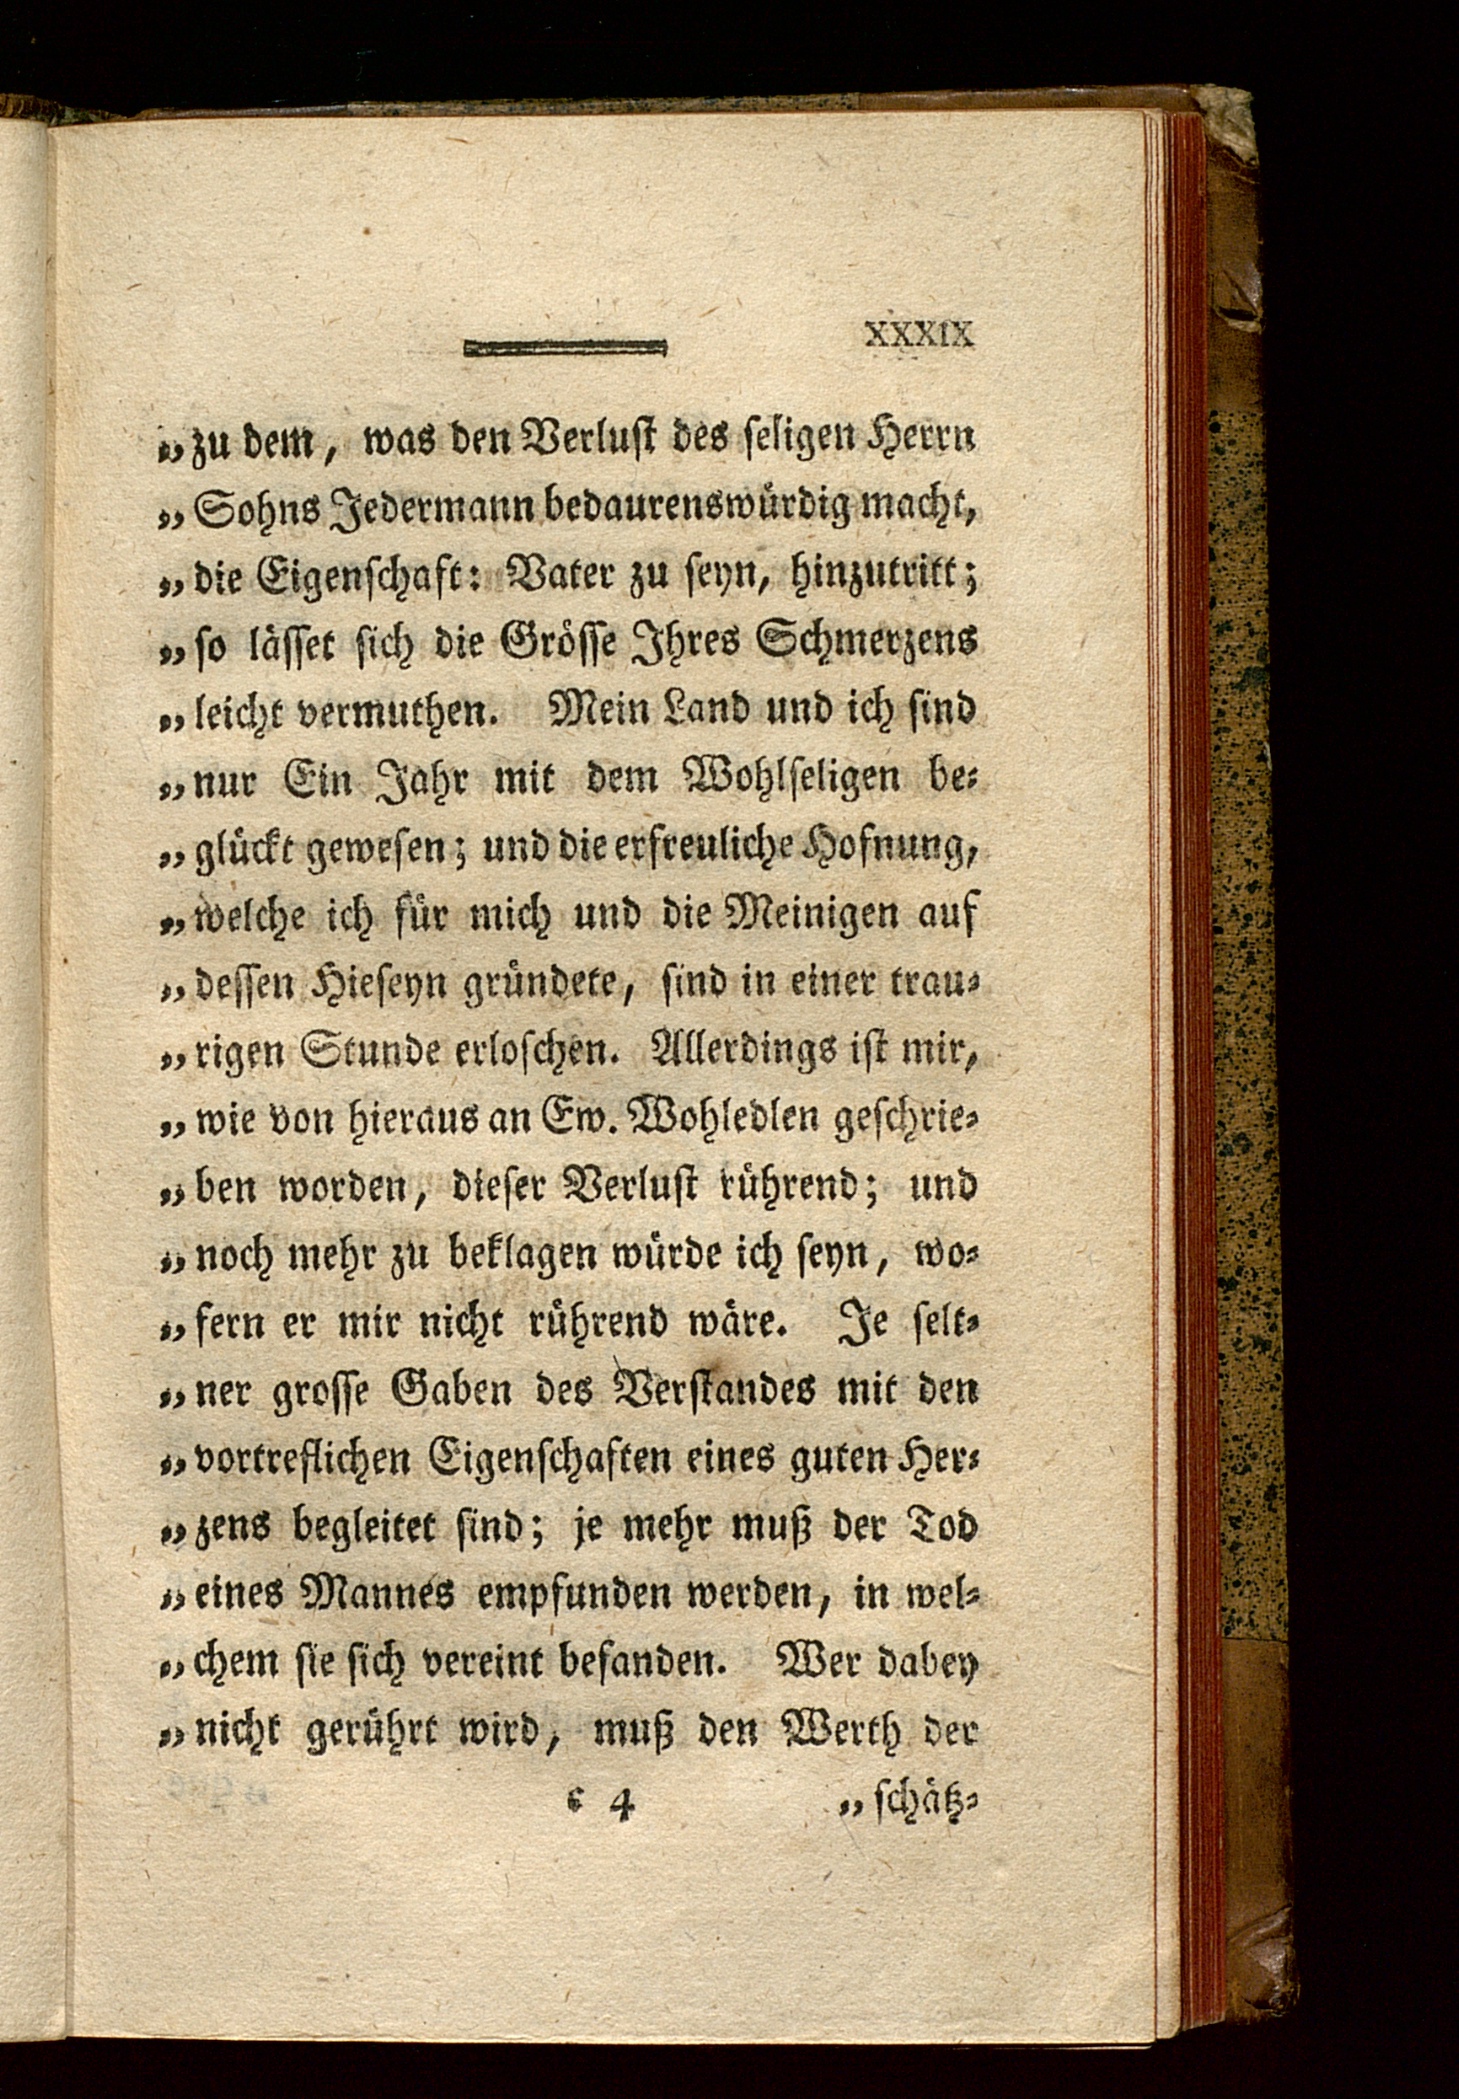 XXXIX
„zu dem, was den Verlust des seligen Herrn
„Sohns Jedermann bedaurenswürdig macht,
„die Eigenschaft: Vater zu seyn, hinzutritt;
„so lässet sich die Grösse Ihres Schmerzens
„leicht vermuthen. Mein Land und ich sind
„nur Ein Jahr mit dem Wohlseligen be-
„glückt gewesen; und die erfreuliche Hofnung,
„welche ich für mich und die Meinigen auf
„dessen Hieseyn gründete, sind in einer trau-
„rigen Stunde erloschen. Allerdings ist mir,
„wie von hieraus an Ew. Wohledlen geschrie-
„ben worden, dieser Verlust rührend; und
„noch mehr zu beklagen würde ich seyn, wo-
„fern er mir nicht rührend wäre. Je selt-
„ner grosse Gaben des Verstandes mit den
„vortreflichen Eigenschaften eines guten Her-
„zens begleitet sind; je mehr muß der Tod
„eines Mannes empfunden werden, in wel-
„chem sie sich vereint befanden. Wer dabey
„nicht gerührt wird, muß den Werth der
c 4 „schätz-